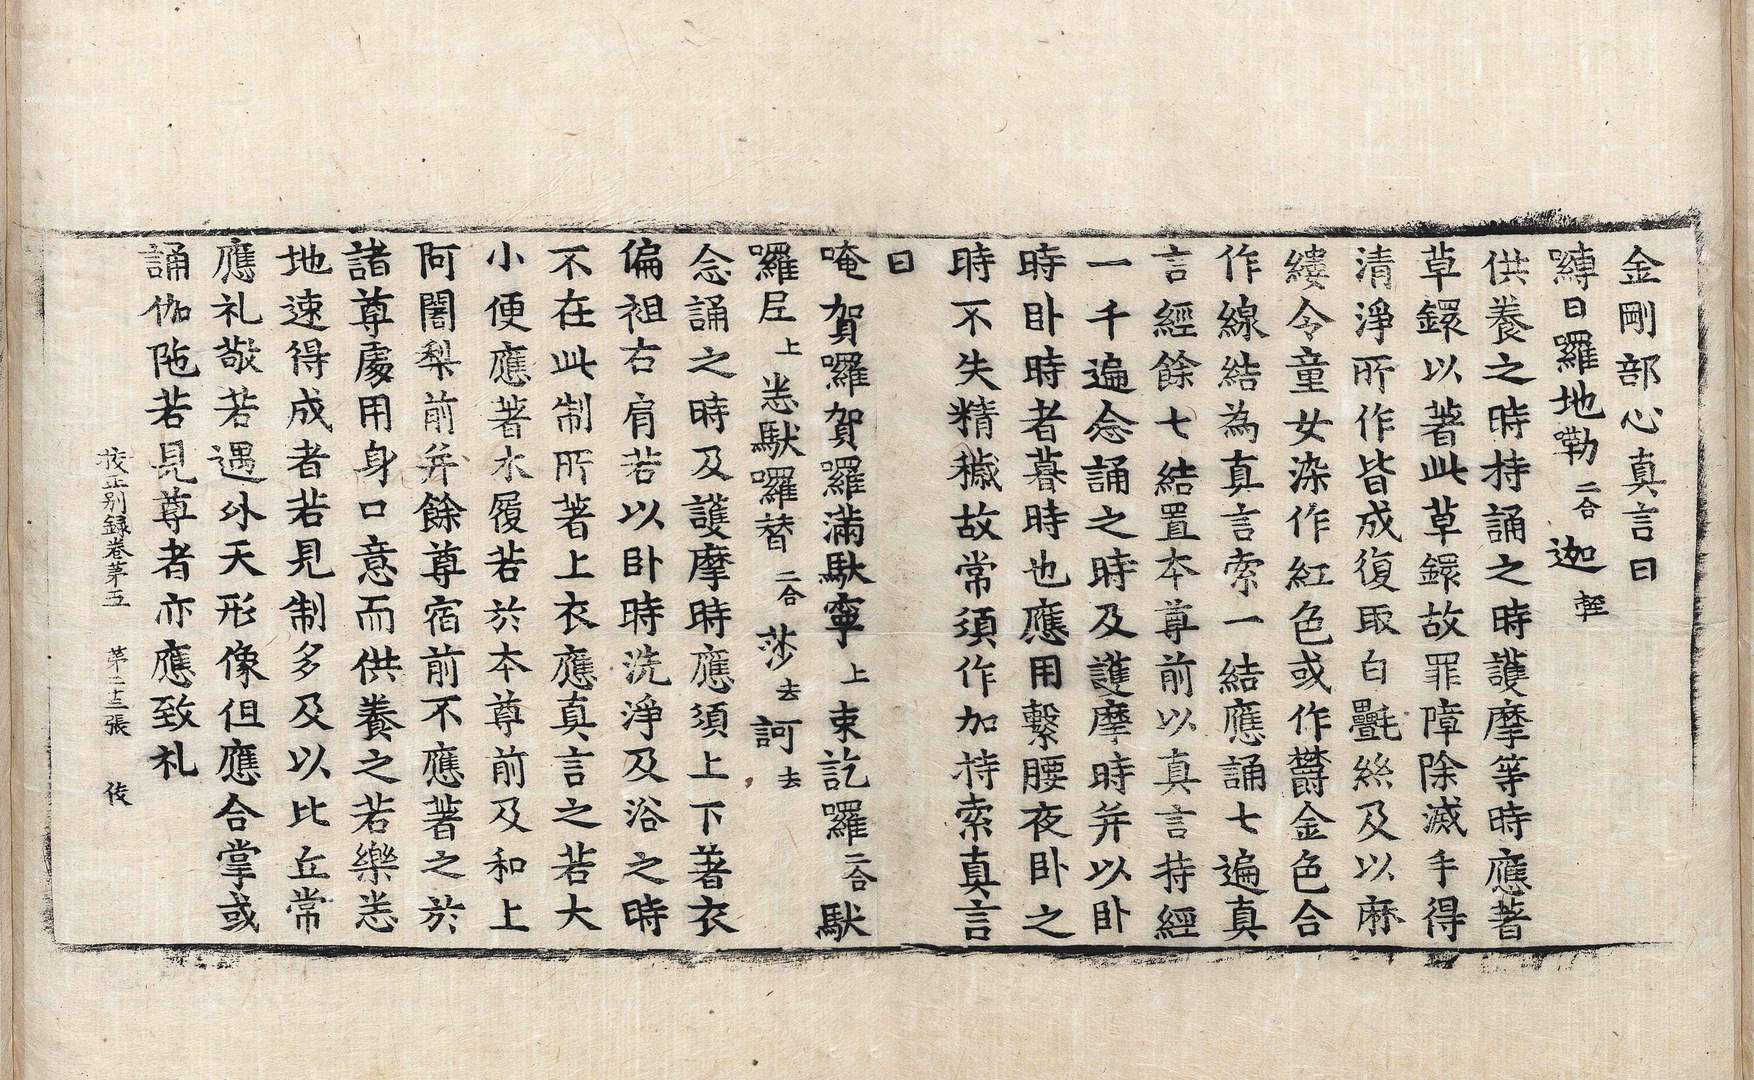 金剛部心真言曰
嚩日囉地勒二合迦輕
供養之時持誦之時護摩等時應著
草鐶以著此草鐶故罪障除滅手得
清淨所作皆成復取白氎絲及以麻
縷令童女染作紅色或作欝金色合
作線結為真言索一結應誦七遍真
言經餘七結置本尊前以真言持經
一千遍念誦之時及護摩時并以卧
時卧時者暮時也應用繫腰夜卧之
時不失精穢故常須作加持索真言
曰
唵賀囉賀囉滿馱寧上束訖囉二合馱
囉𡰱上悉馱囉替二合莎去訶去
念誦之時及護摩時應須上下著衣
偏袒右肩若以卧時洗淨及浴之時
不在此制所著上衣應真言之若大
小便應著水履若於本尊前及和上
阿闍梨前并餘尊宿前不應著之於
諸尊處用身口意而供養之若樂悉
地速得成者若見制多及以比丘常
應礼敬若遇外天形像但應合掌或
誦伽陁若見尊者亦應致礼
校正別録卷苐五　苐二十三張　伎